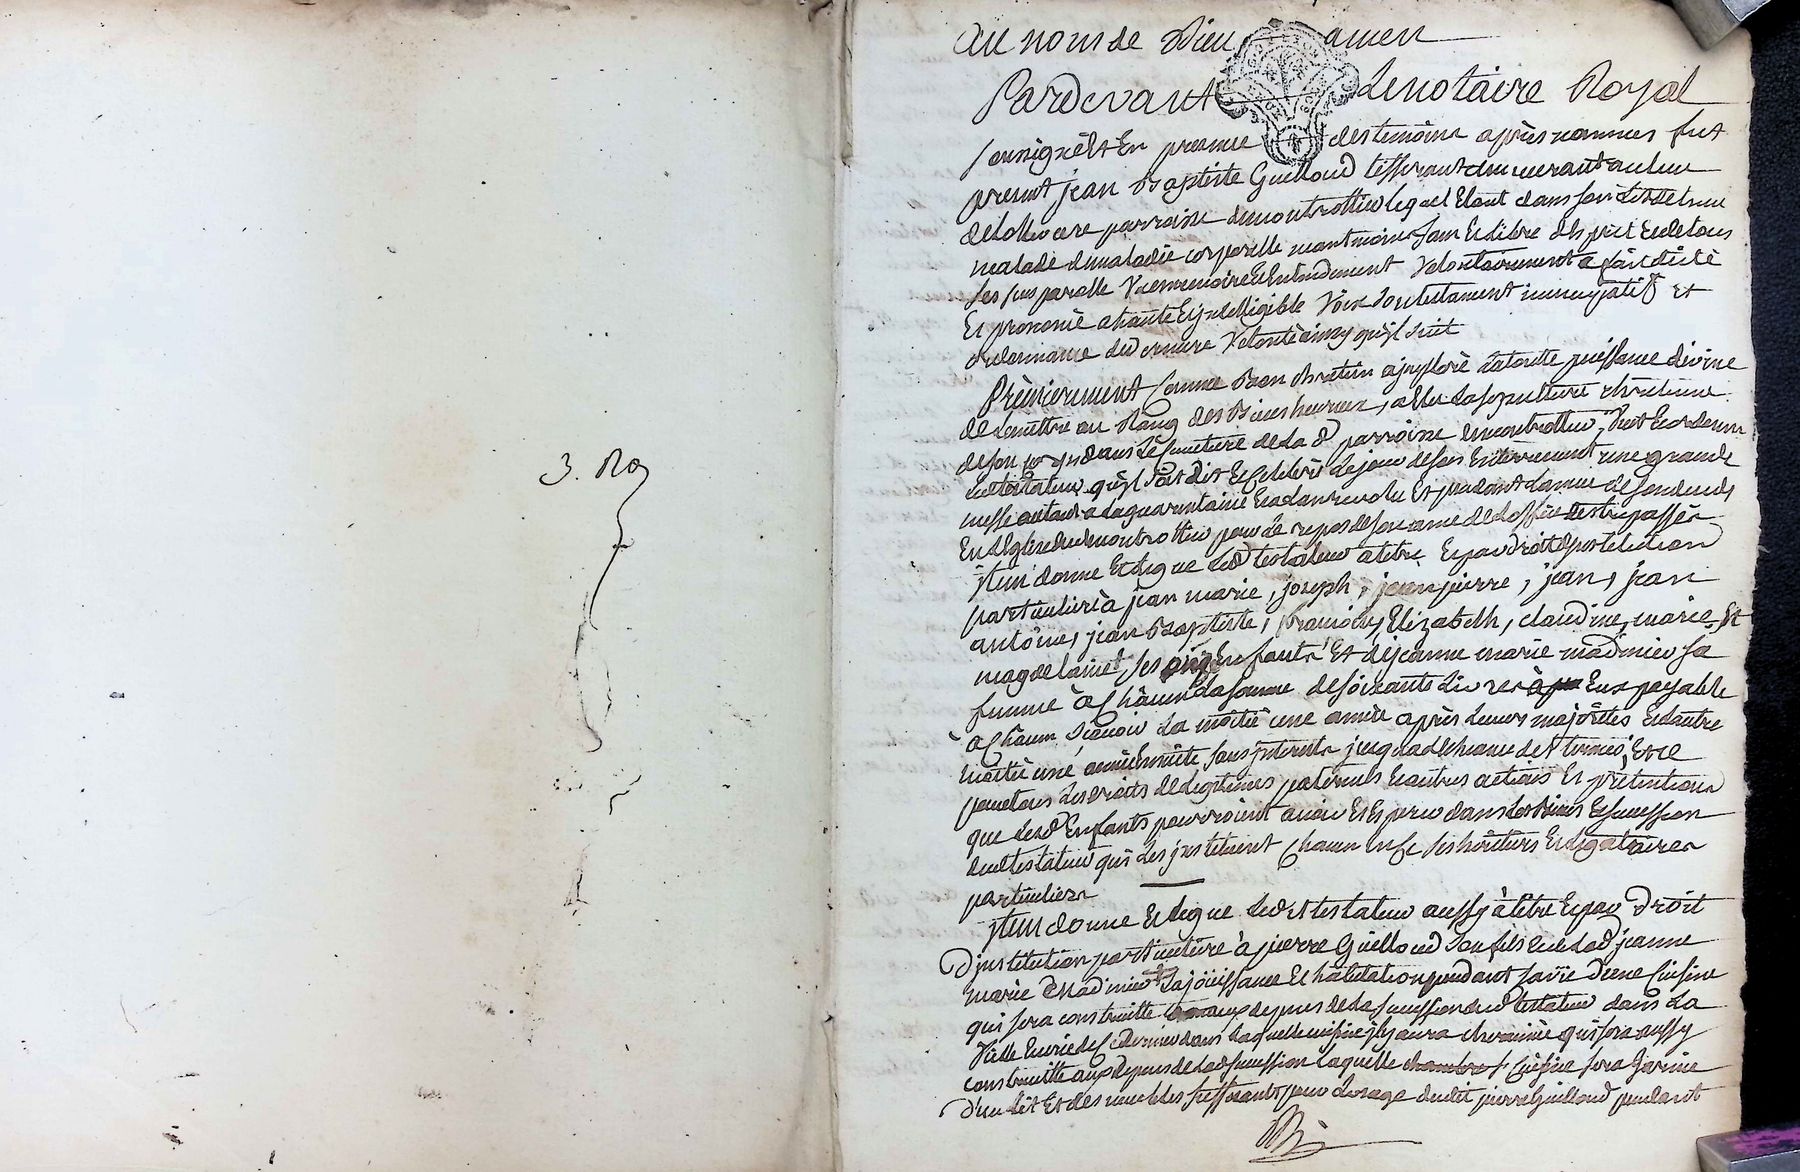 3. Ro
au nom de Dieu amen
Pardevant Lenotaire Royal
soussignè Et En presence des temoins après nommes fut
present jean Baptiste Guilloud tisserant demeurant au lieu
de parroisse demontrottier lequel Etant dans son lit detenu
malade demaladie corporelle neantmoins sain Et libre desprit Et de tous
ses sens parolle Veue memoire Et Entendement Volontairement a fait dicté
Et prononcè a haute Et jntelligible Voix son testament nuncupatif et
ordonnance de derniere Volonté ainsy qu'jl suit
Prèmierement comme Bon chretien a jmplorè la toutte puissance divine
de le mettre au Rang des Bienheureux, a Elu la sepulture chretienne
de son corps dans le cimetiere de la d parroisse demontrottier, Veut Et ordonne
le testateur qu'jl soit dit Et celebrè le jour de son Enterrement une grande
messe autant a la quarantaine Et a l'an revolu Et pendant l'annee
En l'Eglise de montrottier pour le repos de son ame de l'office des trepassès
jtem donne Et legue led testateur a titre Et par droit d'jnstitution
particulière à jean marie, joseph, jean pierre, jean, jean
antoine, jean Baptiste, françois, Elizabeth, claudine, marie Et
magdelaine ses Enfants Et de jeanne marie madinier sa
femme à chacun la somme de soixante Livres Eux payable
à chacun sçavoir La moitié une année après leurs majorités Et l'autre
moitié une année Ensuite sans jnterests jusqu'a dechéance des termes, Et ce
pour tous les droits de legitimes paternels Et autres actions Et pretentions
que lesd Enfants pourroient avoir Et Esperer dans les Biens Et succession
dud testateur qui les jnstituent chacun En ce ses héritiers Et legataires
particuliers
jtem donne Et legue ledit testateur aussy à titre Et par Droit
D'jnstitution particulière à pierre Guilloud son fils Et de lad jeanne
marie Madinier La jouissance Et habitation pendant sa vie D'une Cuisine
qui sera construitte aux depens de la succession dud testateur dans La
dans laquelle cuisine jl y aura cheminée qui sera aussy
construitte aux depens de lad succession laquelle chambre Cuisine sera garnie
D'un lit Et des meubles suffisants pour L'usage dudit pierre Guilloud pendant